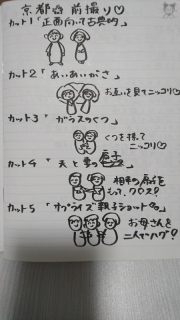 京都 前撮り♡
カット1「正面向いて古典的」
カット2「あいあいがさ」
お互いを見てニッコリ♡
カット3「ガラスのくつ」
くつを持って
ニッコリ♡
カット4
相手の扇子を
もって、クロス!
カット5「サプライズ親子ショット
お母さんを
二人でハグ!